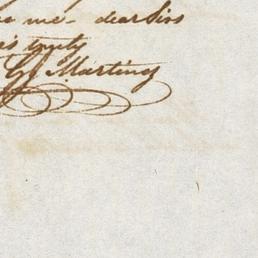 me - dear Sirs
truly
G Martiny